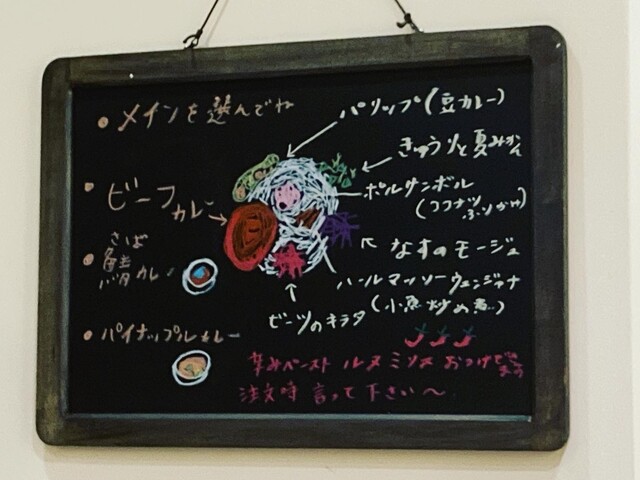 メインを選んでね
ビーフ
カレー
さば
鯖カレー
パイナップルカレー
パリップ(豆カレー)
きゅうりと夏みかん
ポルサンボル
(ココナツ
ふりかけ)
なすのモージュ
ハールマッソーウェンジャナ
(小魚炒め煮)
ビーツのキラタ
辛みペースト ルヌミリス おつけできます
注文時 言って下さい〜